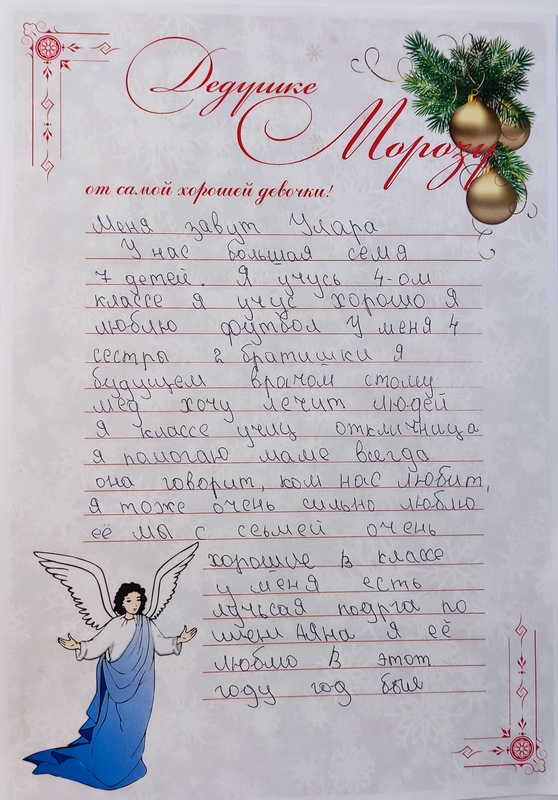 Дедушке
Морозу
от самой хорошей девочки!
Меня завут Улара
У нас большая семя
7 детей. Я учусь 4-ом
классе я учус хорошо Я
люблю футбол У меня 4
сестры 2 братишки Я
будущем врачом стому
мед хочу лечит людей
Я классе учиц откличница
я памогаю маме всегда
она говорит, ком нас любит,
я тоже очень сильно люблю
её мы с сесьмей очень
хорошие В классе
у меня есть
лучьсая подрга по
имени Аяна Я её
люблю В этот
году год был